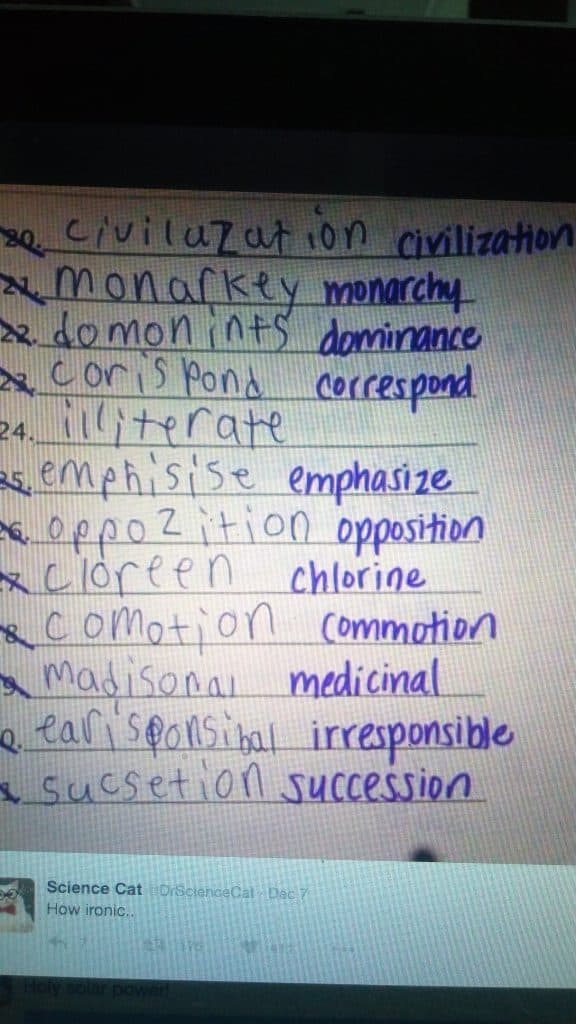 20. civiluzation civilization
21. monarkey monarchy
22. domonints dominance
23. corispond correspond
24. illiterate
25. emphisise emphasize
26. oppozition opposition
7 cloreen chlorine
8 comotion commotion
9 madisonal medicinal
0. earisponsibal irresponsible
sucsetion succession
Science Cat @DrScienceCat · Dec 7
How ironic..
7 176
Holy solar power!